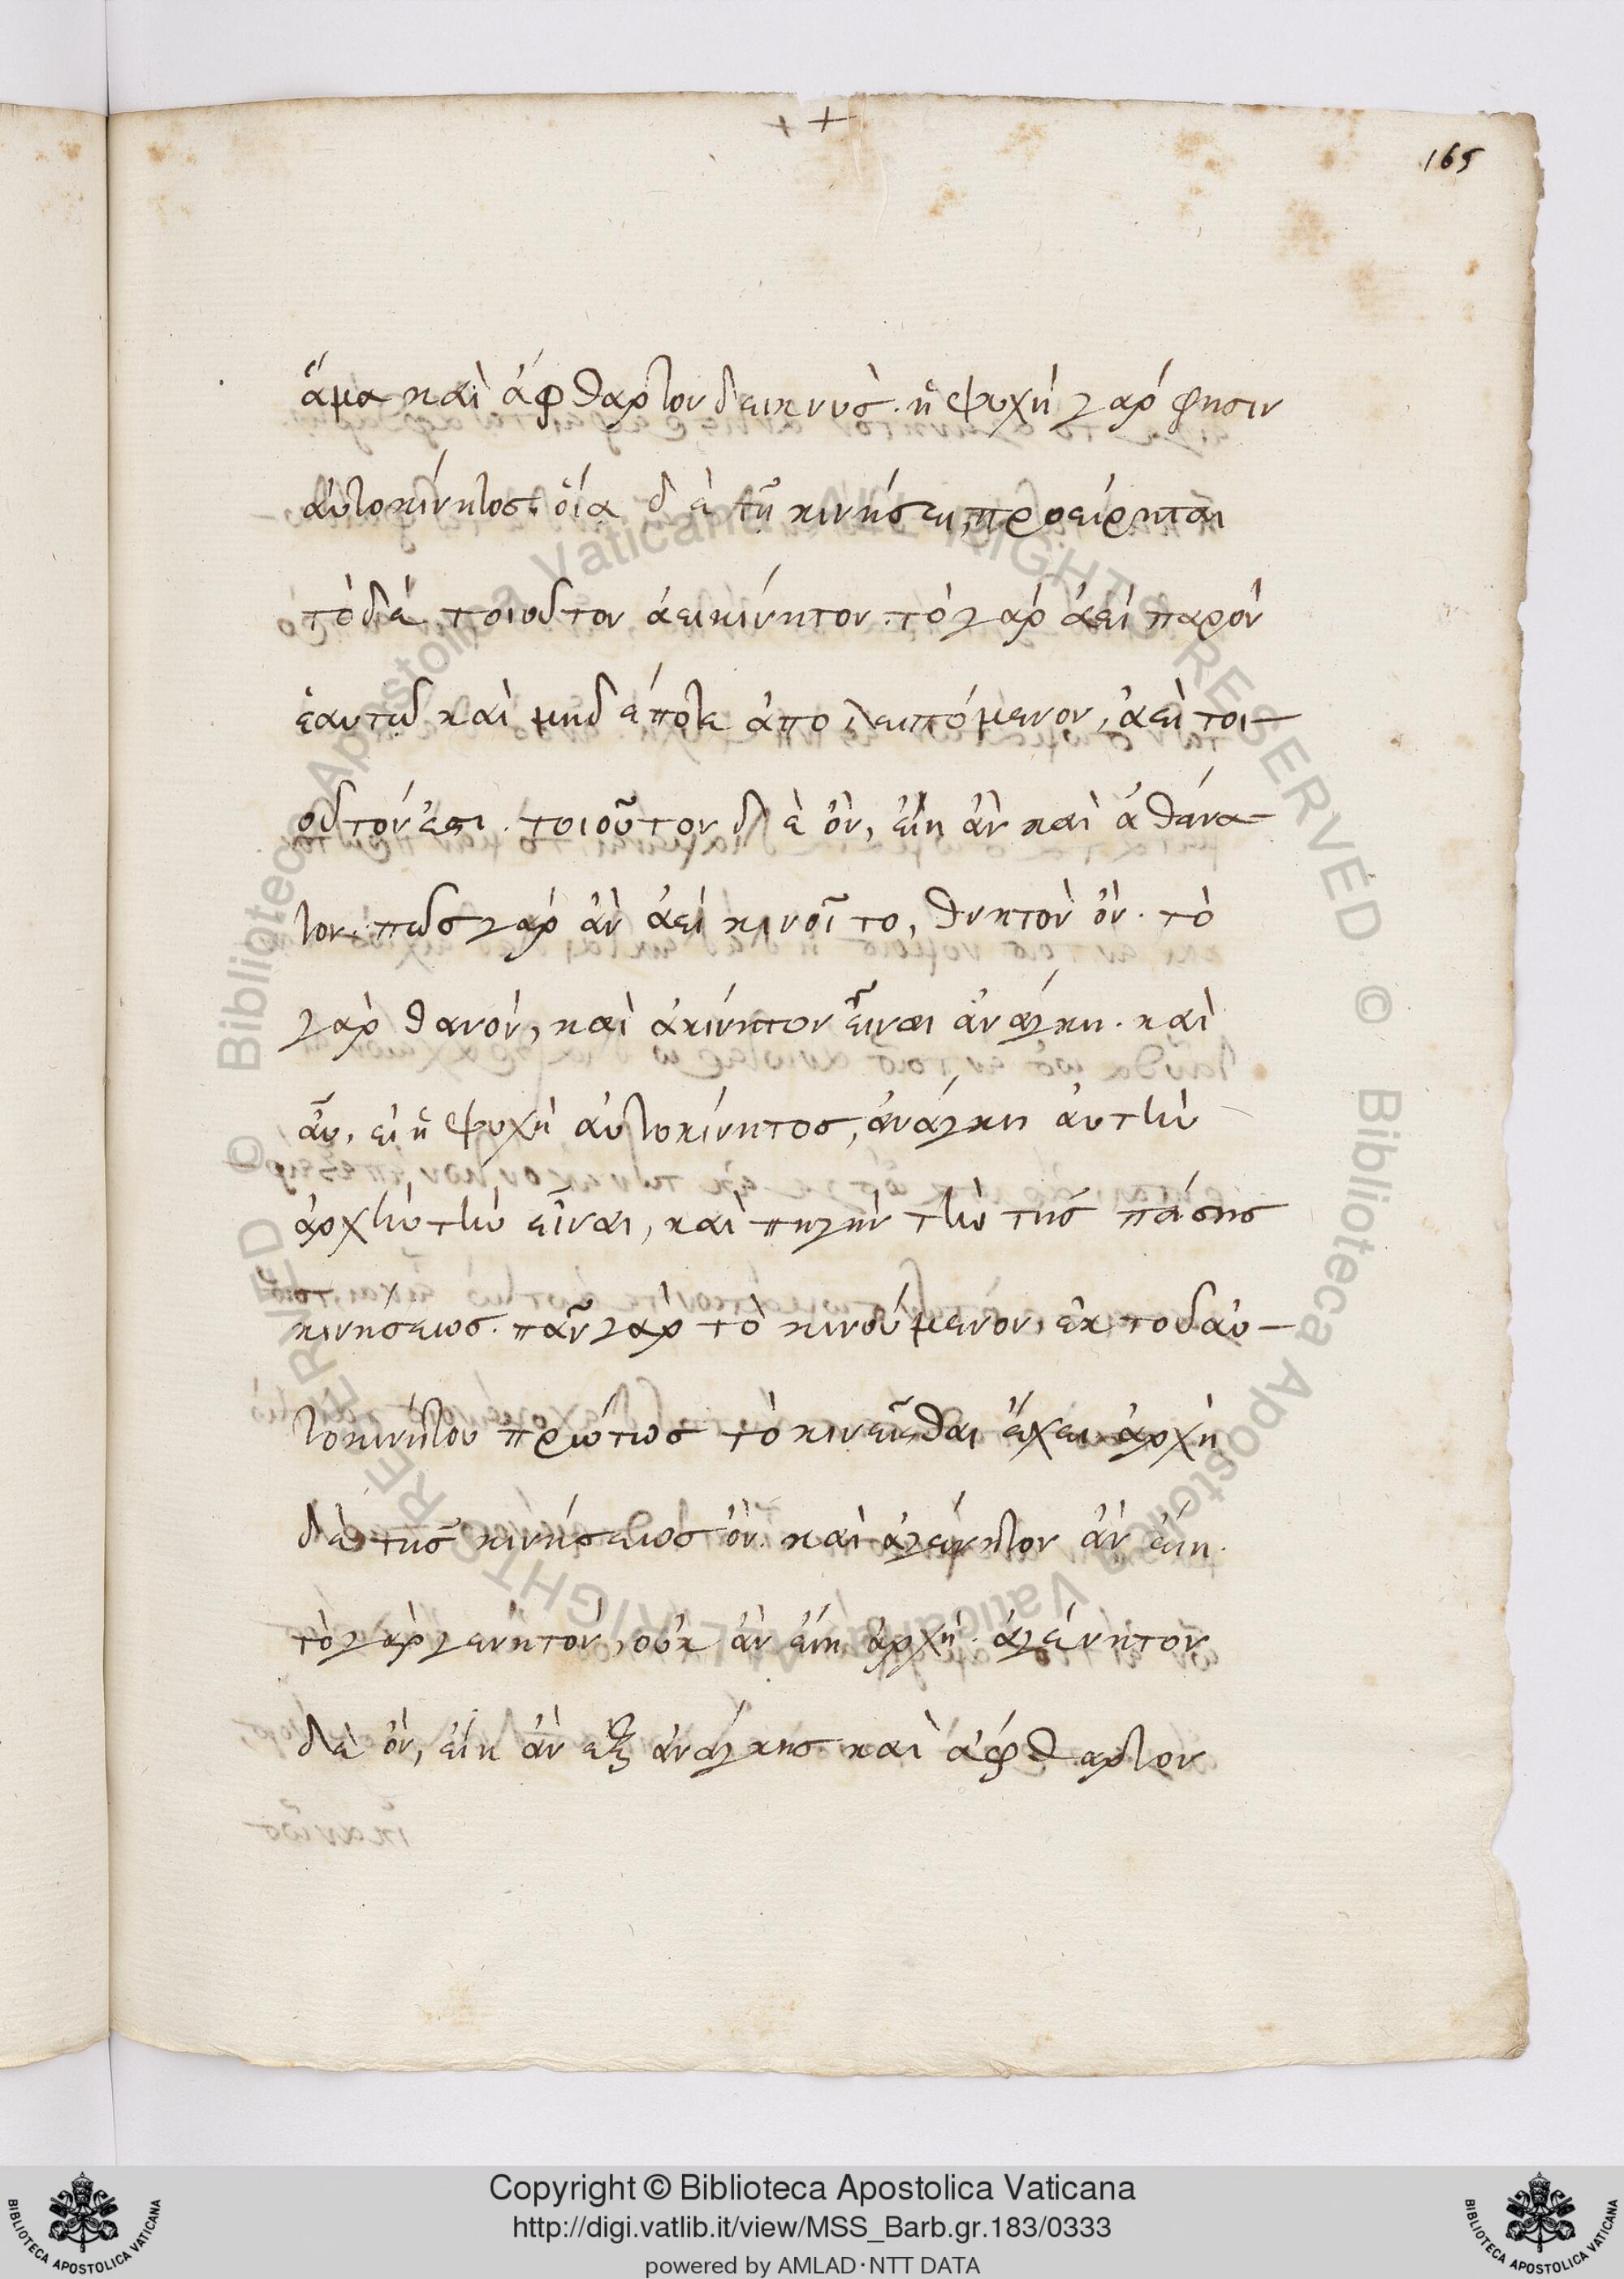 165
ἅμα καὶ ἄφθαρτον δεικνύς. ἡ ψυχή γάρ φησιν
αὐτοκίνητος. οἵα δὲ τῇ κινήσει, προείρηται
τὸ δὲ τοιοῦτον ἀεικίνητον. τὸ γὰρ ἀεὶ παρὸν
ἑαυτῷ καὶ μηδέποτε ἀπολειπόμενον, ἀεὶ τοι-
οῦτόν ἐστι. τοιοῦτον δὲ ὂν, εἴη ἂν καὶ ἀθάνα-
τον. πῶς γὰρ ἂν ἀεὶ κινοῖτο, θνητὸν ὄν. τὸ
γὰρ θανὸν, καὶ ἀκίνητον εἶναι ἀνάγκη. καὶ
αὖ, εἰ ἡ ψυχὴ αὐτοκίνητος, ἀνάγκη αὐτὴν
ἀρχὴν τὴν εἶναι, καὶ πηγὴν τὴν τῆς πάσης
κινήσεως. πᾶν γὰρ τὸ κινούμενον, ἐκ τοῦ αὐ-
τοκινήτου πρώτως τὸ κινεῖσθαι ἔχει ἀρχὴ
δὲ τῆς κινήσεως ὂν. καὶ ἀγένητον ἂν εἴη.
τὸ γὰρ γενητὸν, οὐκ ἂν εἴη ἀρχή. ἀγένητον
δὲ ὂν, εἴη ἂν ἐξ ἀνάγκης καὶ ἄφθαρτον
Copyright © Biblioteca Apostolica Vaticana
http://digi.vatlib.it/view/MSS_Barb.gr.183/0333
powered by AMLAD·NTT DATA
BIBLIOTECA APOSTOLICA VATICANA
BIBLIOTECA APOSTOLICA VATICANA
© Biblioteca Apostolica Vaticana ALL RIGHTS RESERVED
© Biblioteca Apostolica Vaticana ALL RIGHTS RESERVED